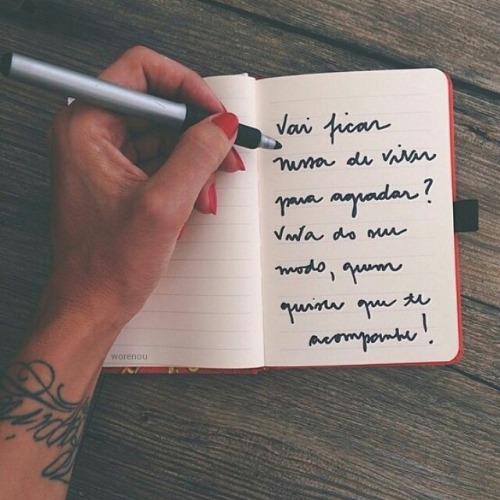 Vai ficar
nessa de viver
para agradar?
Viva do seu
modo, quem
quiser que te
acompanhe!
worenou